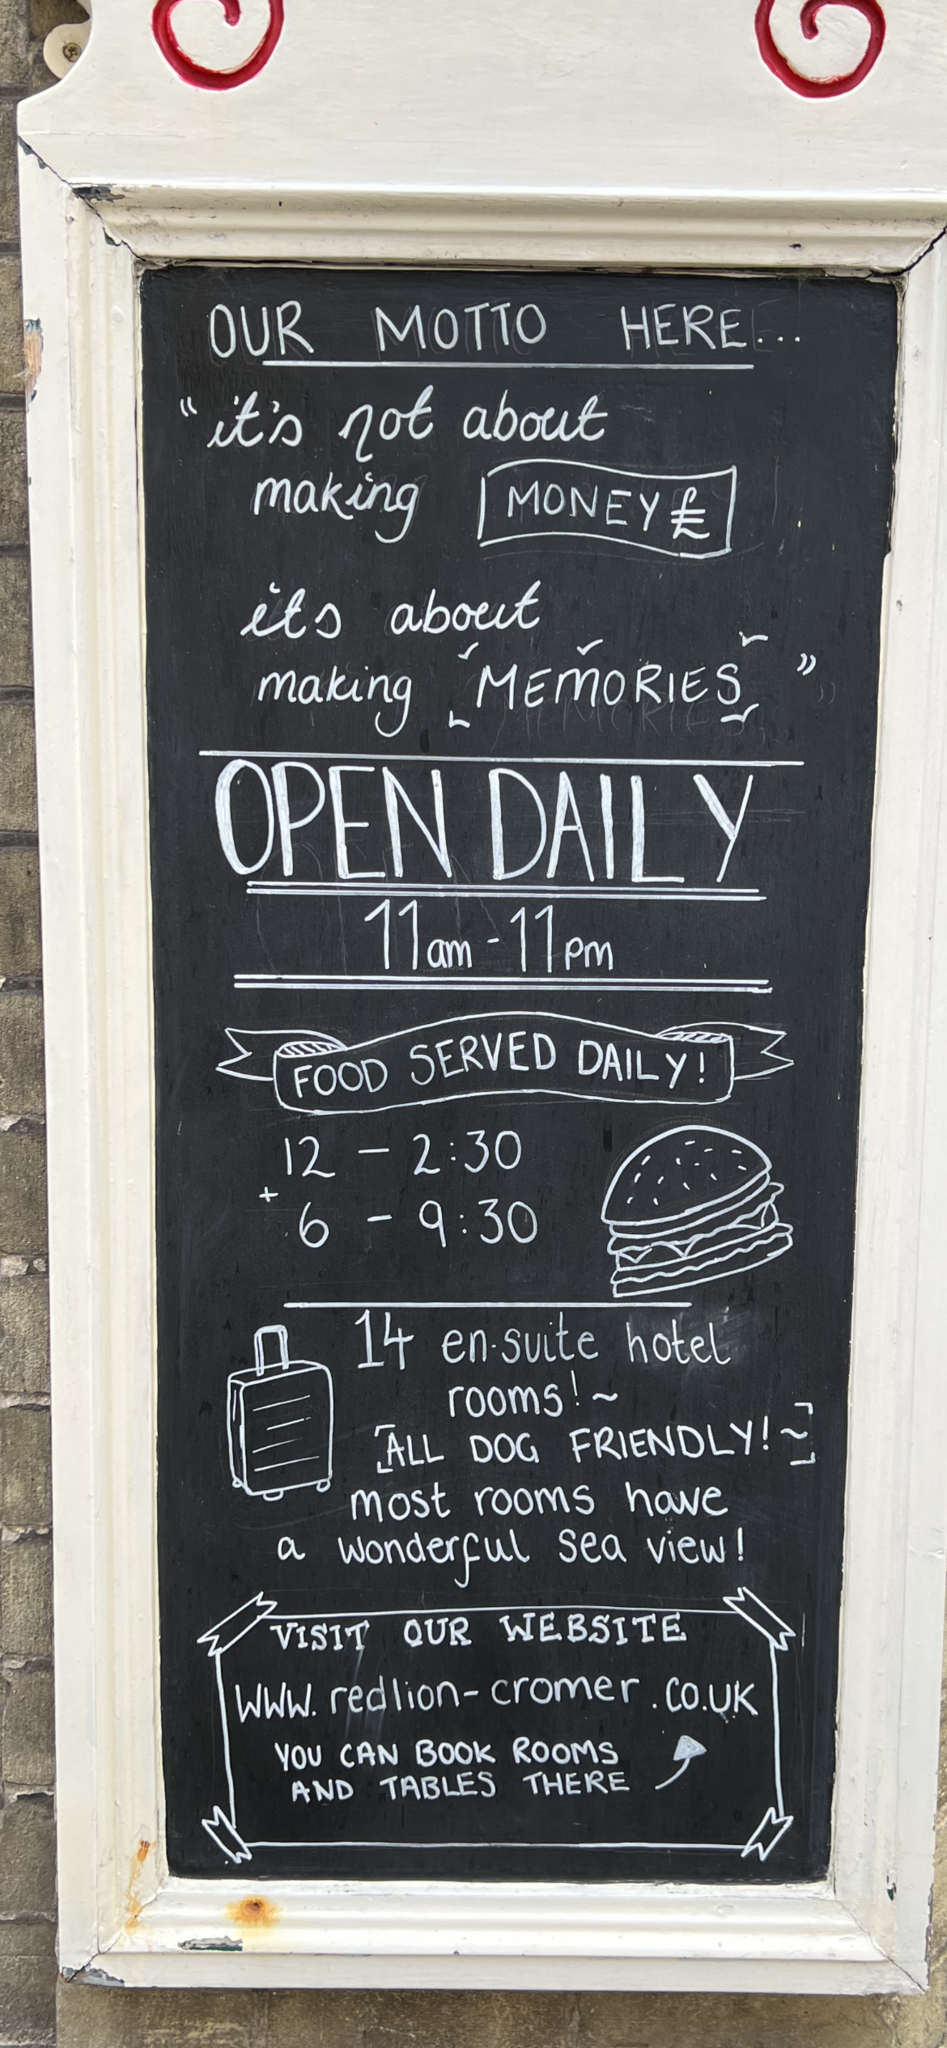 OUR MOTTO HERE...
"it's not about
making MONEY £
its about
making MEMORIES"
OPEN DAILY
11am - 11pm
FOOD SERVED DAILY!
12 - 2:30
+
6 - 9:30
14 en-suite hotel
rooms! ~
[ALL DOG FRIENDLY! ~]
most rooms have
a wonderful sea view!
VISIT OUR WEBSITE
www.redlion-cromer.co.uk
YOU CAN BOOK ROOMS
AND TABLES THERE